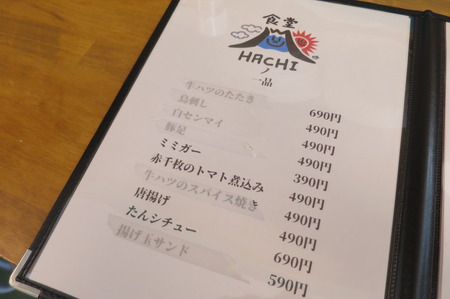 食堂
HACHI
ノ
一品
牛ハツのたたき 690円
鳥刺し 490円
白センマイ 490円
豚足 490円
ミミガー 390円
赤千枚のトマト煮込み 490円
牛ハツのスパイス焼き 490円
唐揚げ 490円
たんシチュー 690円
揚げ玉サンド 590円